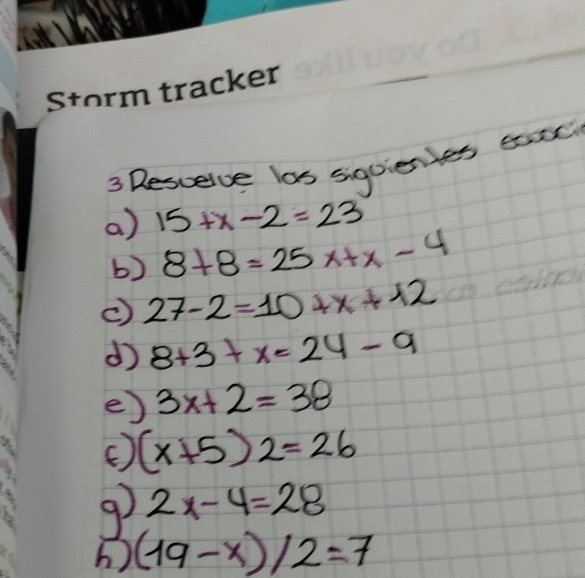 Storm tracker
3 Resuelve las siguientes
a) 15+x-2=23
b) 8+8=25x+x-4
c) 27-2=10+x+12
d) 8+3+x=24-9
e) 3x+2=38
f) (x+5)2=26
g) 2x-4=28
h) (19-x)/2=7